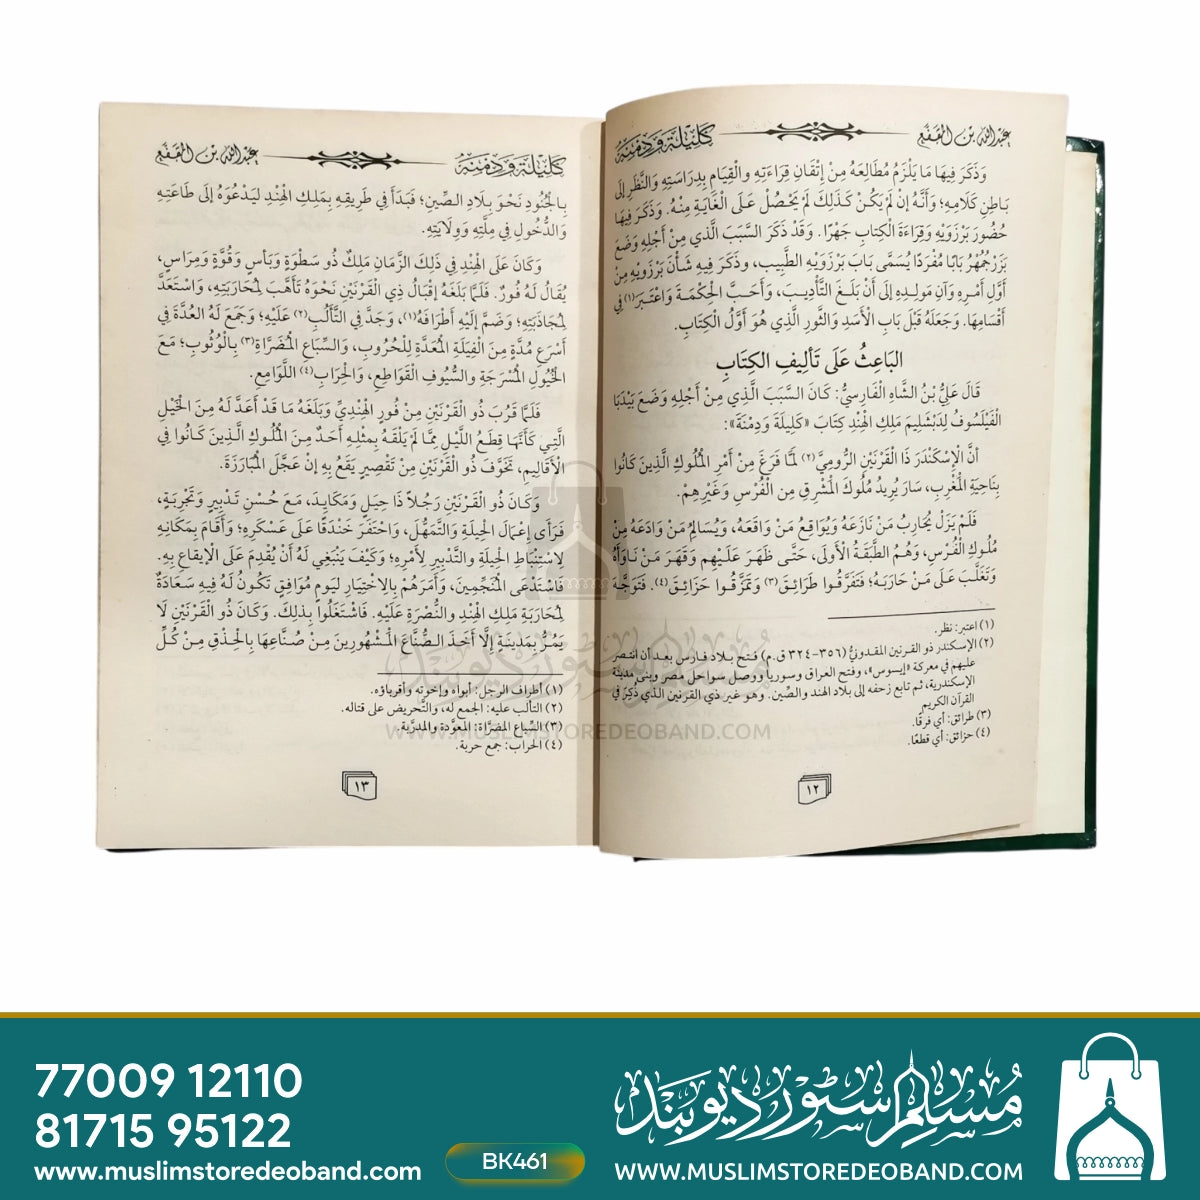 عبد الله بن المقفع
كليلة ودمنة
وَذَكَرَ فِيهَا مَا يَلْزَمُ مُطَالِعَهُ مِنْ إِتْقَانِ قِرَاءَتِهِ وَالْقِيَامِ بِدِرَاسَتِهِ وَالنَّظَرِ إِلَى
بَاطِنِ كَلَامِهِ؛ وَأَنَّهُ إِن لَمْ يَكُنْ كَذَلِكَ لَمْ يَحْصُلْ عَلَى الْغَايَةِ مِنْهُ. وَذَكَرَ فِيهَا
حُضُورَ بَرْزَوَيْهِ وَقِرَاءَةَ الْكِتَابِ جَهْرًا. وَقَدْ ذَكَرَ السَّبَبَ الَّذي مِنْ أَجْلِهِ وَضَعَ
بَزَرْجُمُهْرُ بَابًا مُفْرَدًا يُسَمَّى بَابَ بَرْزَوَيْهِ الطَّبِيبِ، وذَكَرَ فِيهِ شَأْنَ بَرْزَوَيْهِ مِنْ
أَوَّلِ أَمْرِهِ وَآنِ مَولِدِهِ إِلَى أَنْ بَلَغَ التَّأْدِيبَ، وَأَحَبَّ الْحِكْمَةَ وَاعْتَبَرَ(١) فِي
أَقْسَامِهَا. وَجَعَلَهُ قَبْلَ بَابِ الْأَسَدِ وَالثَّورِ الَّذِي هُوَ أَوَّلُ الْكِتَابِ.
البَاعِثُ عَلَى تَأْلِيفِ الكِتَابِ
قَالَ عَلِيُّ بْنُ الشَّاهِ الْفَارِسِيُّ: كَانَ السَّبَبَ الَّذِي مِنْ أَجْلِهِ وَضَعَ بَيْدَبَا
الْفَيْلَسُوفُ لِدَبْشَلِيمَ مَلِكِ الْهِنْدِ كِتَابَ «كَلِيلَةَ وَدِمْنَةَ»:
أَنَّ الْإِسْكَنْدَرَ ذَا الْقَرْنَيْنِ الرُّومِيَّ (٢) لَمَّا فَرَغَ مِنْ أَمْرِ الْمُلُوكِ الَّذِينَ كَانُوا
بِنَاحِيَةِ الْمَغْرِبِ، سَارَ يُرِيدُ مُلُوكَ الْمَشْرِقِ مِن الْفُرْسِ وَغَيْرِهِمْ.
فَلَمْ يَزَلْ يُحَارِبُ مَنْ نَازَعَهُ وَيُوَاقِعُ مَنْ وَاقَعَهُ، وَيُسَالِمُ مَنْ وَادَعَهُ مِنْ
مُلُوكِ الْفُرْسِ، وَهُمُ الطَّبَقَةُ الْأُولَى، حَتَّى ظَهَرَ عَلَيْهِم وَقَهَرَ مَنْ نَاوَأَهُ
وَتَغَلَّبَ عَلَى مَنْ حَارَبَهُ؛ فَتَفَرَّقُوا طَرَائِقَ (٣) وَتَمَزَّقُوا حَزَائِقَ (٤). فَتَوَجَّهَ
(١) اعتبر: نظر.
(٢) الإسكندر ذو القرنين المقدونيُّ (٣٥٦-٣٢٤ ق.م) فتح بلاد فارس بعد أن انتصر
عليهم في معركة «إيسوس»، وفتح العراق وسوريا ووصل سواحل مصر وبنى مدينة
الإسكندرية، ثم تابع زحفه إلى بلاد الهند والصِّين. وهو غير ذي القرنين الذي ذُكِرَ في
القرآن الكريم
(٣) طرائق: أي فرقًا.
(٤) حزائق: أي قطعًا.
١٢
كليلة ودمنة
عبد الله بن المقفع
بِالْجُنُودِ نَحْوَ بِلَادِ الصِّينِ؛ فَبَدَأَ فِي طَرِيقِهِ بِمَلِكِ الْهِنْدِ لِيَدْعُوَهُ إِلَى طَاعَتِهِ
وَالدُّخُولِ فِي مِلَّتِهِ وَوِلَايَتِهِ.
وَكَانَ عَلَى الْهِنْدِ فِي ذَلِكَ الزَّمَانِ مَلِكٌ ذُو سَطْوَةٍ وَبَأْسٍ وَقُوَّةٍ وَمِرَاسٍ،
يُقَالُ لَهُ فُورٌ. فَلَمَّا بَلَغَهُ إِقْبَالُ ذِي الْقَرْنَيْنِ نَحْوَهُ تَأَهَّبَ لِمُحَارَبَتِهِ، وَاسْتَعَدَّ
لِمُجَاذَبَتِهِ؛ وَضَمَّ إِلَيْهِ أَطْرَافَهُ(١)، وَجَدَّ فِي التَّأَلُّبِ (٢) عَلَيْهِ؛ وَجَمَعَ لَهُ الْعُدَّةَ فِي
أَسْرَعِ مُدَّةٍ مِنَ الْفِيَلَةِ الْمُعَدَّةِ لِلْحُرُوبِ، وَالسِّبَاعِ الْمُضَرَّاةِ(٣) بِالْوُثُوبِ؛ مَعَ
الْخُيُولِ الْمُسْرَجَةِ وَالسُّيُوفِ الْقَوَاطِعِ، وَالْحِرَابِ(٤) اللَّوَامِعِ.
فَلَمَّا قَرُبَ ذُو الْقَرْنَيْنِ مِنْ فُورٍ الْهِنْدِيِّ وَبَلَغَهُ مَا قَدْ أَعَدَّ لَهُ مِنَ الْخَيْلِ
الَّتِي كَأَنَّهَا قِطَعُ اللَّيْلِ مِمَّا لَمْ يَلْقَهُ بِمِثْلِهِ أَحَدٌ مِنَ الْمُلُوكِ الَّذِينَ كَانُوا فِي
الْأَقَالِيمِ، تَخَوَّفَ ذُو الْقَرْنَيْنِ مِنْ تَقْصِيرٍ يَقَعُ بِهِ إِنْ عَجَّلَ الْمُبَارَزَةَ.
وَكَانَ ذُو الْقَرْنَيْنِ رَجُلًا ذَا حِيَلٍ وَمَكَايِدَ، مَعَ حُسْنِ تَدْبِيرٍ وَتَجْرِبَةٍ،
فَرَأَى إِعْمَالَ الْحِيلَةِ وَالتَّمَهُّلَ، وَاحْتَفَرَ خَنْدَقًا عَلَى عَسْكَرِهِ؛ وَأَقَامَ بِمَكَانِهِ
لِاسْتِنْبَاطِ الْحِيلَةِ وَالتَّدْبِيرِ لِأَمْرِهِ؛ وَكَيْفَ يَنْبَغِي لَهُ أَنْ يُقْدِمَ عَلَى الْإِيقَاعِ بِهِ.
فَاسْتَدْعَى الْمُنَجِّمِينَ، وَأَمَرَهُمْ بِالِاخْتِيَارِ لِيَومٍ مُوَافِقٍ تَكُونُ لَهُ فِيهِ سَعَادَةٌ
لِمُحَارَبَةِ مَلِكِ الْهِنْدِ وَالنُّصْرَةِ عَلَيْهِ. فَاشْتَغَلُوا بِذَلِكَ. وَكَانَ ذُو الْقَرْنَيْنِ لَا
يَمُرُّ بِمَدِينَةٍ إِلَّا أَخَذَ الصُّنَّاعَ الْمَشْهُورِينَ مِنْ صُنَّاعِهَا بِالْحِذْقِ مِنْ كُلِّ
(١) أطراف الرجل: أبواه وإخوته وأقرباؤه.
(٢) التألب عليه: الجمع له، والتَّحريض على قتاله.
(٣) السِّباع المضرَّاة: المعوَّدة والمدرَّبة.
(٤) الحراب: جمع حربة.
١٣
مسلم سٹور دیوبند
WWW.MUSLIMSTOREDEOBAND.COM
77009 12110
81715 95122
www.muslimstoredeoband.com
BK461
مسلم سٹور دیوبند
WWW.MUSLIMSTOREDEOBAND.COM